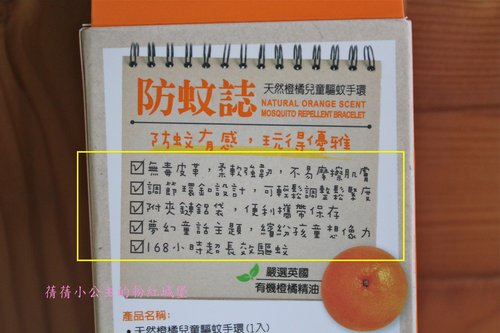 防蚊誌
天然橙橘兒童驅蚊手環
NATURAL ORANGE SCENT
MOSQUITO REPELLENT BRACELET
防蚊有感,玩得優雅
☑無毒皮革,柔軟強韌,不易摩擦肌膚
☑調節環釦設計,可輕鬆調整鬆緊度
☑附夾鏈鋁袋,便利攜帶保存
☑夢幻童話主題,繽紛孩童想像力
☑168小時超長效驅蚊
嚴選英國
有機橙橘精油
蒨蒨小公主的粉紅城堡
產品名稱:
• 天然橙橘兒童驅蚊手環(1入)